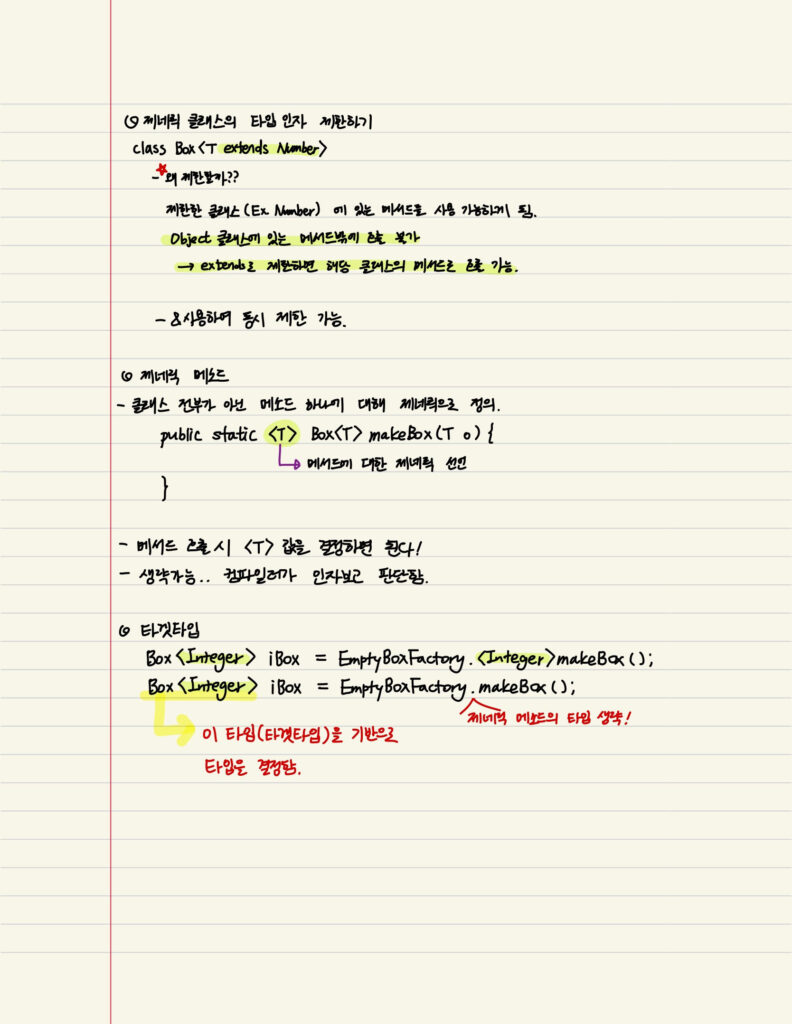 제네릭 클래스의 타입 인자 제한하기
class Box<T extends Number>
- 왜 제한할까??
제한한 클래스(Ex Number) 에 있는 메서드를 사용 가능하게 됨.
Object 클래스에 있는 메서드밖에 호출 불가
→ extends로 제한하면 해당 클래스의 메서드로 호출 가능.
- &사용하여 동시 제한 가능.
제네릭 메소드
- 클래스 전부가 아닌 메소드 하나에 대해 제네릭으로 정의.
public static <T> Box<T> makeBox(T o) {
메서드에 대한 제네릭 선언
}
- 메서드 호출 시 <T> 값을 결정하면 된다!
- 생략가능.. 컴파일러가 인자보고 판단함.
타겟타입
Box<Integer> iBox = EmptyBoxFactory.<Integer>makeBox();
Box<Integer> iBox = EmptyBoxFactory.makeBox();
제네릭 메소드의 타입 생략!
이 타입(타겟타입)을 기반으로
타입을 결정함.